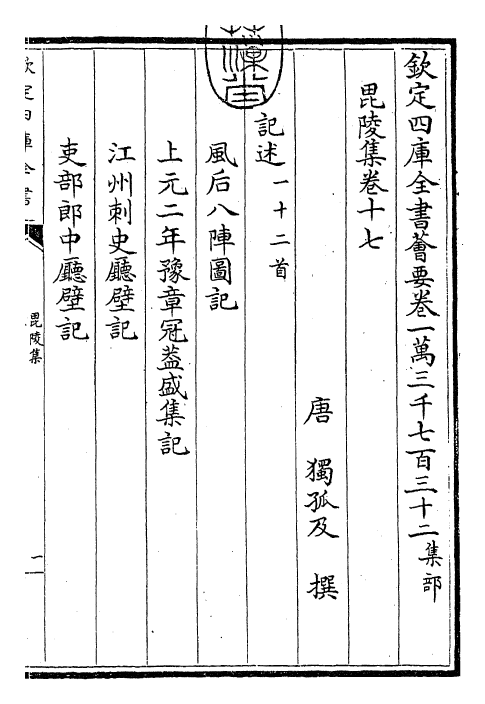 欽定四庫全書薈要卷一萬三千七百三十二集部
毘陵集卷十七
唐 獨孤及 撰
記述一十二首
風后八陣圖記
上元二年豫章冠葢盛集記
江州刺史廳壁記
吏部郎中廳壁記
欽定四庫全書
毘陵集
一